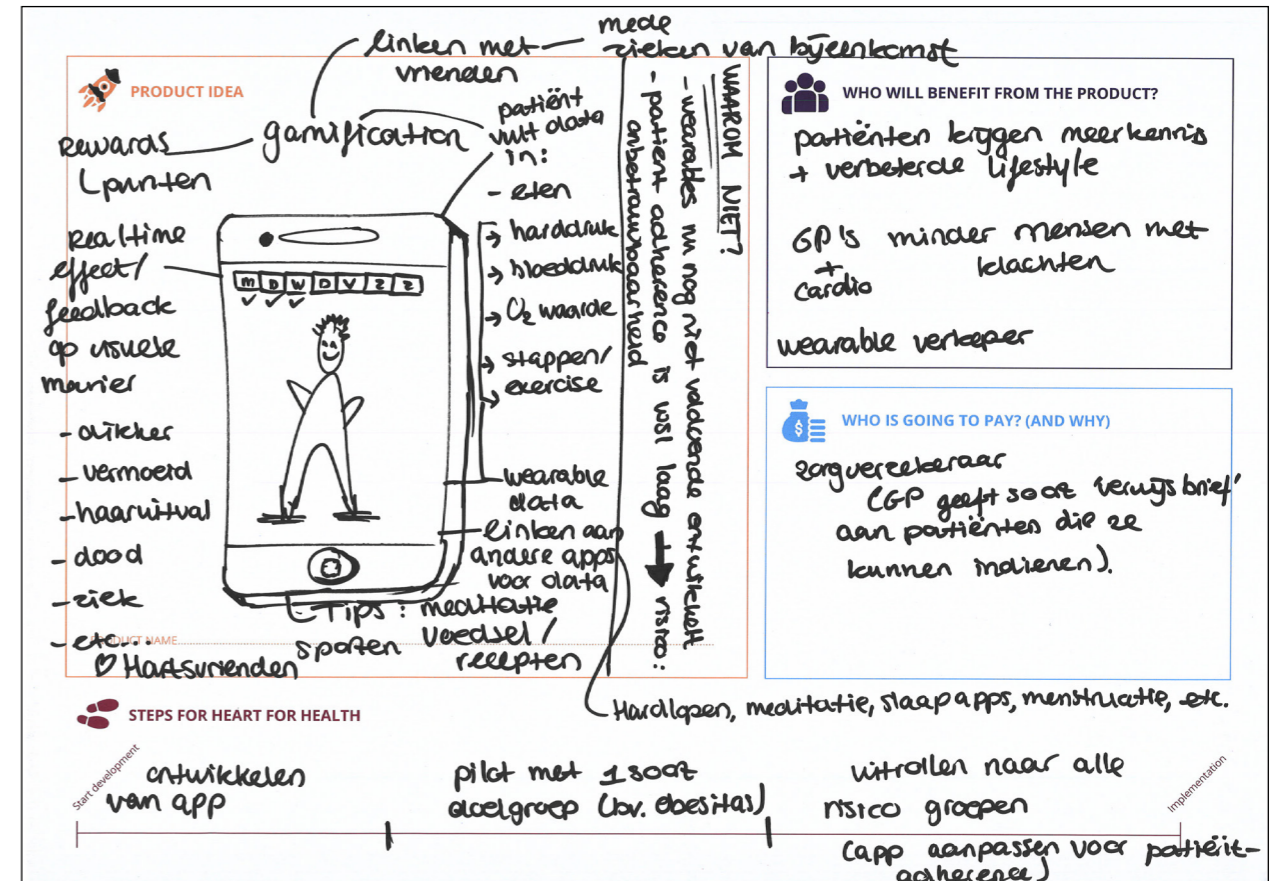 linken met
vrienden
mede
zieken van bijeenkomst
PRODUCT IDEA
Rewards
punten
gamification
patiënt
vult data
in:
- eten
→ harddruk
→ bloeddruk
→ O2 waarde
→ stappen/
→ exercise
wearable
data
linken aan
andere apps
voor data
Realtime
effect/
feedback
op visuele
manier
- dikker
- vermoeid
- haaruitval
- dood
- ziek
- etc...
M D W D V Z Z
Tips : meditatie
sporten voedsel /
recepten
PRODUCT NAME
♡ Hartsvrienden
WAAROM NIET?
- wearables nu nog niet voldoende ontwikkelt
- patient adherence is wsl laag → risico:
onbetrouwbaarheid
WHO WILL BENEFIT FROM THE PRODUCT?
patiënten krijgen meer kennis
+ verbeterde lifestyle
GP's minder mensen met
+ klachten
cardio
wearable verkoper
WHO IS GOING TO PAY? (AND WHY)
zorgverzekeraar
(GP geeft soort 'verwijsbrief'
aan patiënten die ze
kunnen indienen).
Hardlopen, meditatie, slaap apps, menstructie, etc.
STEPS FOR HEART FOR HEALTH
Start development
ontwikkelen
van app
pilot met 1 soort
doelgroep (bv. obesitas)
uitrollen naar alle
risico groepen
(app aanpassen voor patiënt-
adherence)
Implementation